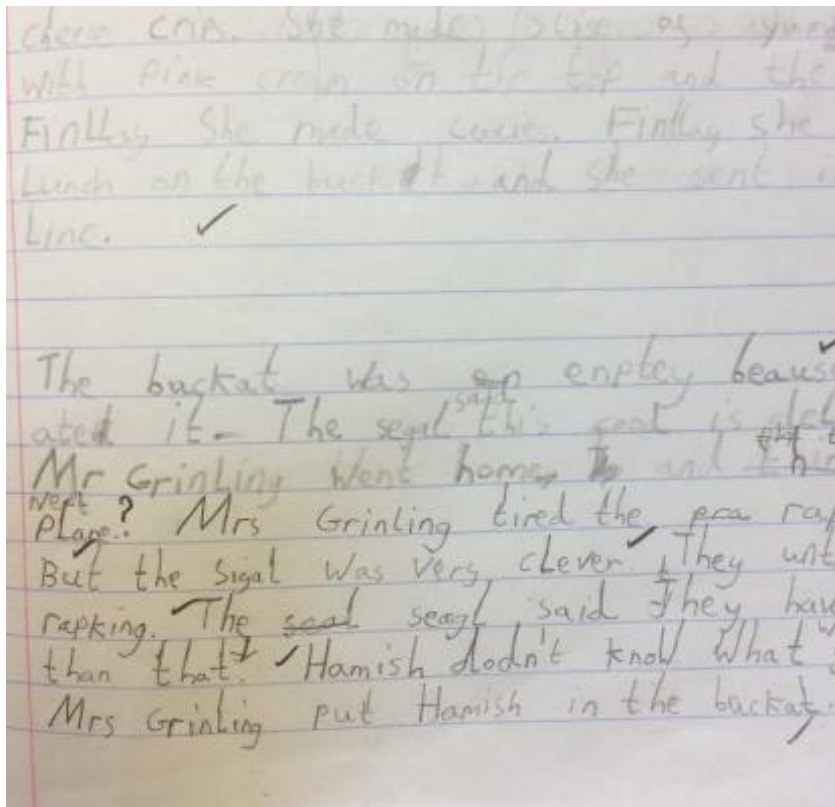 cheese crips. She made slise of
with Pink cream on the top and the
Finllay She made cookies. Finllay she
Lunch on the buckit and she sent
Line.
The backat was en enptey beaus
ated it. The segal said this food is
Mr Grinling went home, and
next plane.? Mrs Grinling tired the pra rap
But the sigal was very clever. They unt
rapking. The seal seagl said They hav
than that. Hamish dodn't know What w
Mrs Grinling put Hamish in the backat.